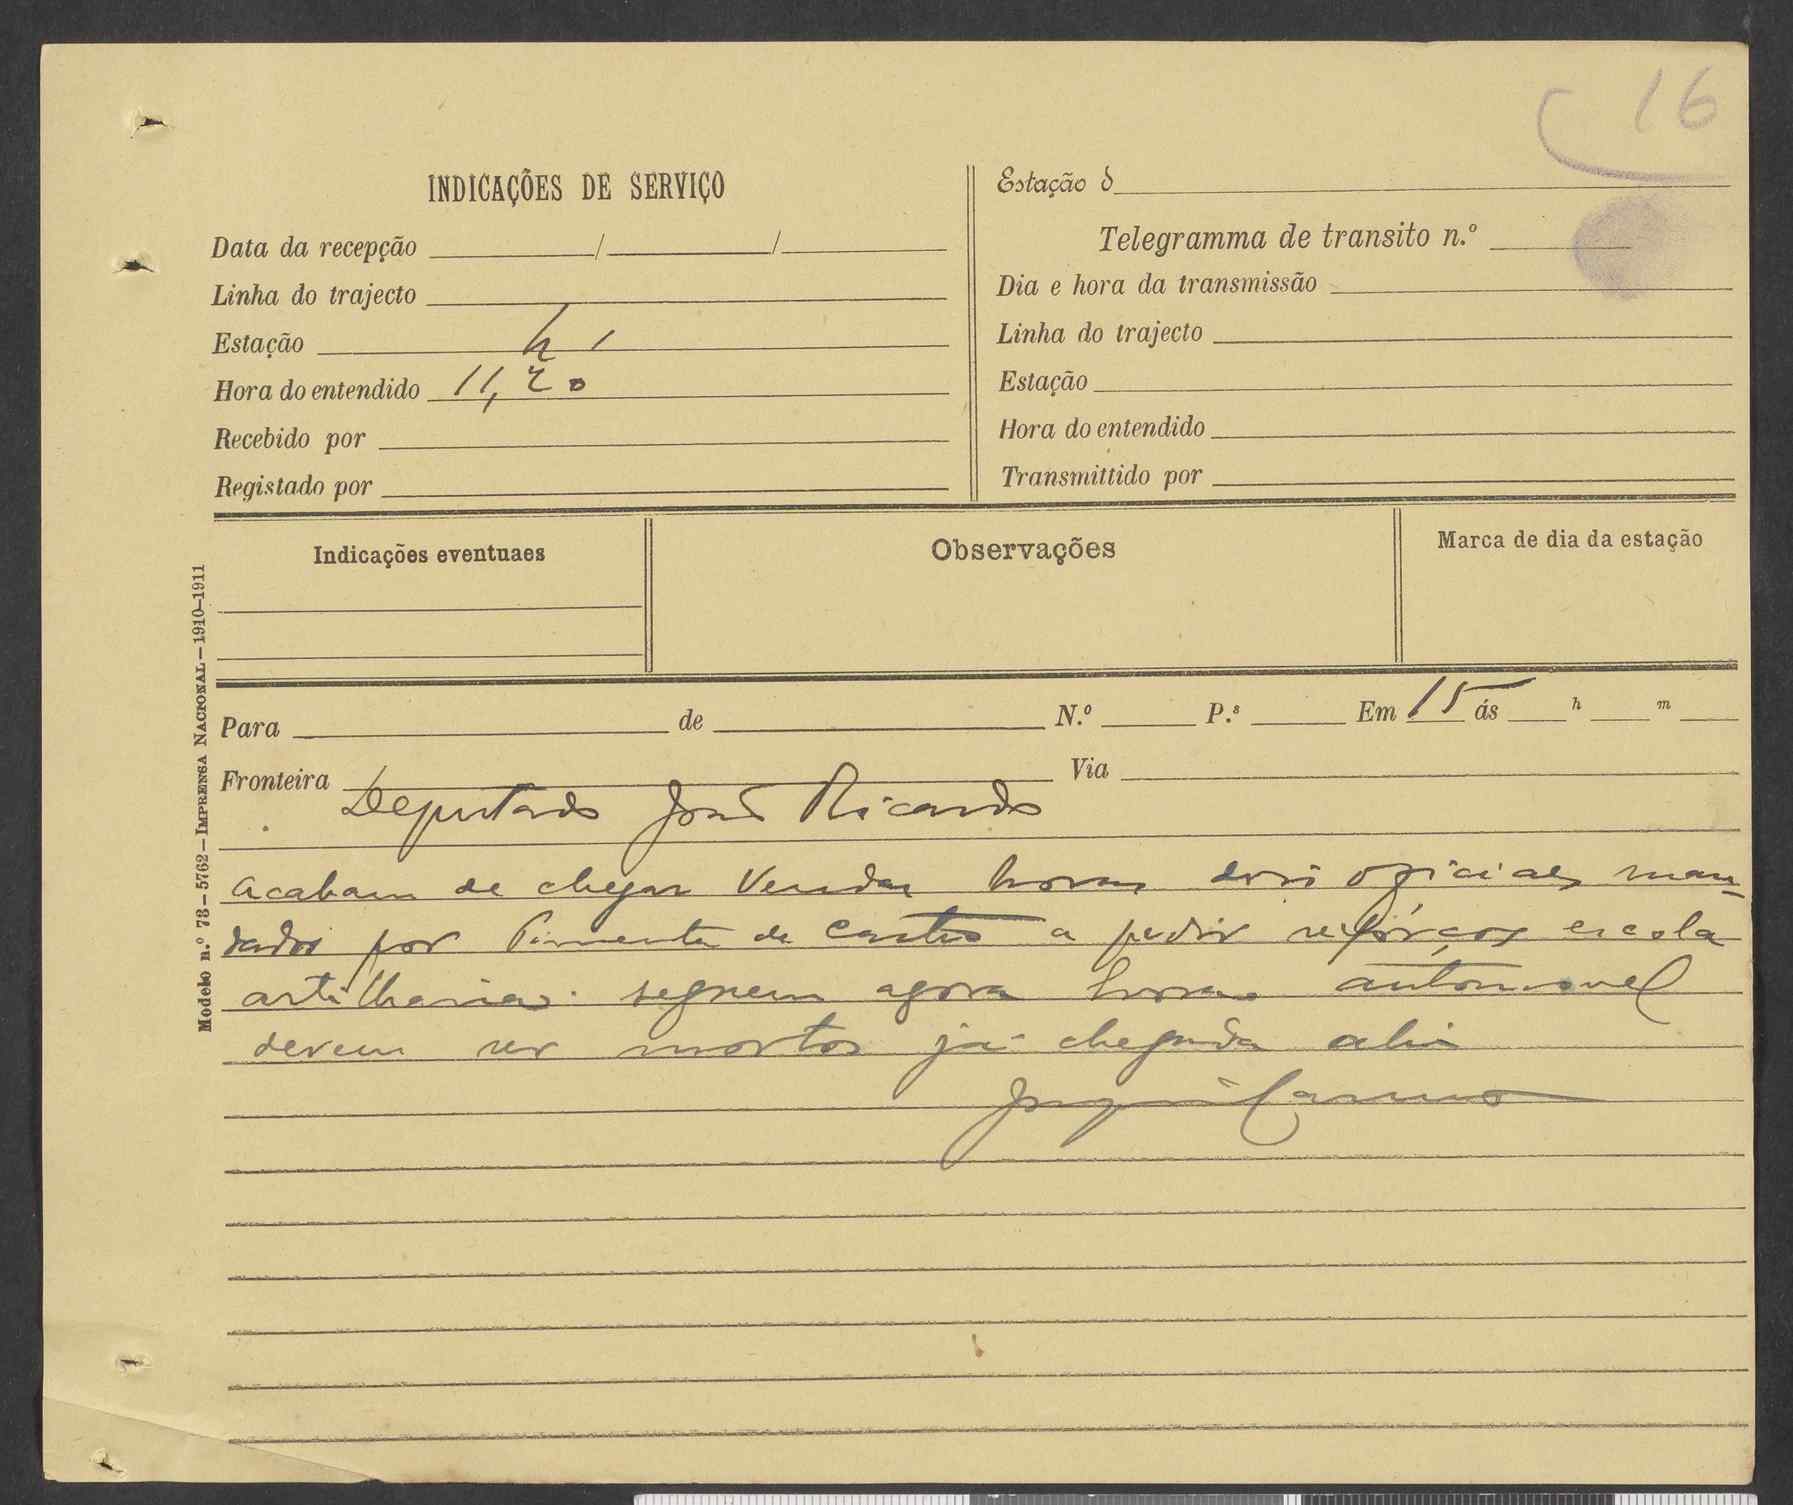 16
INDICAÇÕES DE SERVIÇO
Data da recepção / /
Linha do trajecto
Estação
Hora do entendido 11,20
Recebido por
Registado por
Estação d
Telegramma de transito n.º
Dia e hora da transmissão
Linha do trajecto
Estação
Hora do entendido
Transmittido por
Indicações eventuaes
Observações
Marca de dia da estação
Modelo n.º 73 – 5762 – IMPRENSA NACIONAL – 1910–1911
Para de N.º P.s Em 15 ás h m
Fronteira Via
Deputado José Ricardo
Acabam de chegar Vendas Novas dois oficiaes man-
dados por Pimenta de Castro a pedir refórços escola
artilharia. seguem agora automovel
devem ser mortos já chegada ahi